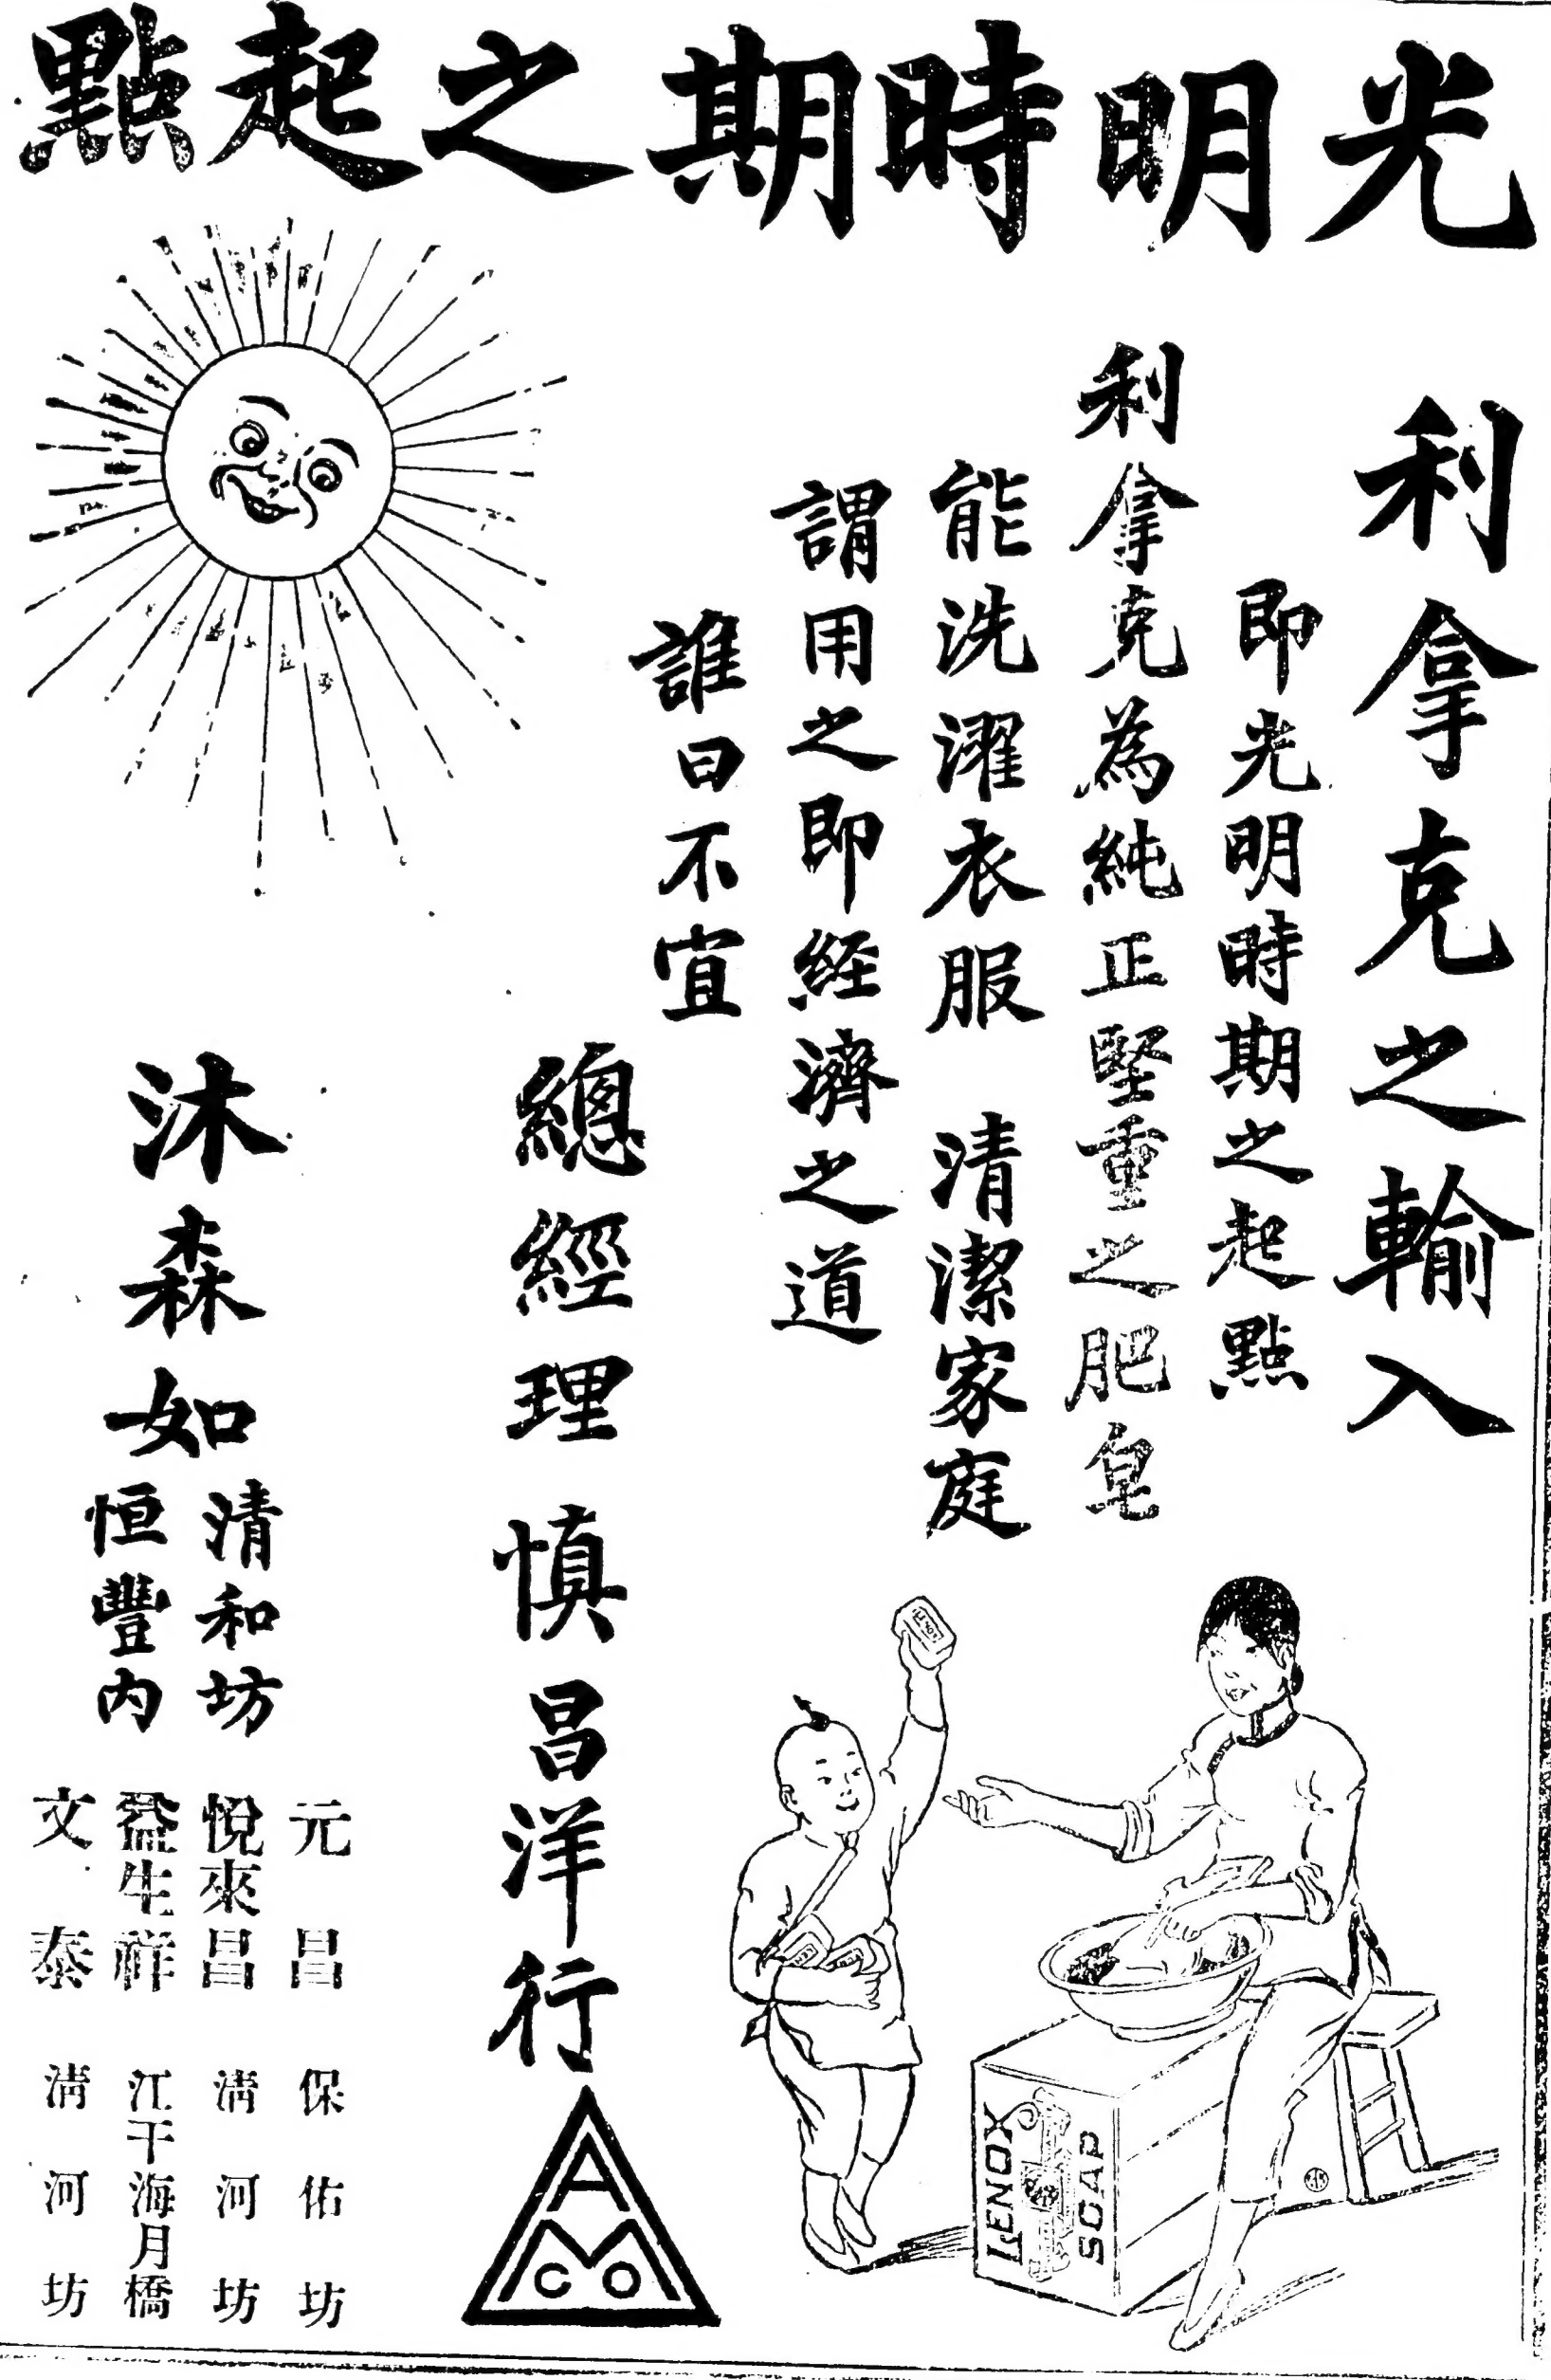 光明時期之起點
利拿克之輸入
即光明時期之起點
利拿克為純正堅重之肥皂
能洗濯衣服 清潔家庭
謂用之即経濟之道
誰曰不宜
總經理 慎昌洋行
沐森如
清和坊
恒豐內
元昌 保佑坊
悅來昌 清河坊
益生祥 江干海月橋
文泰 清河坊
A
M
CO
LENOX
SOAP